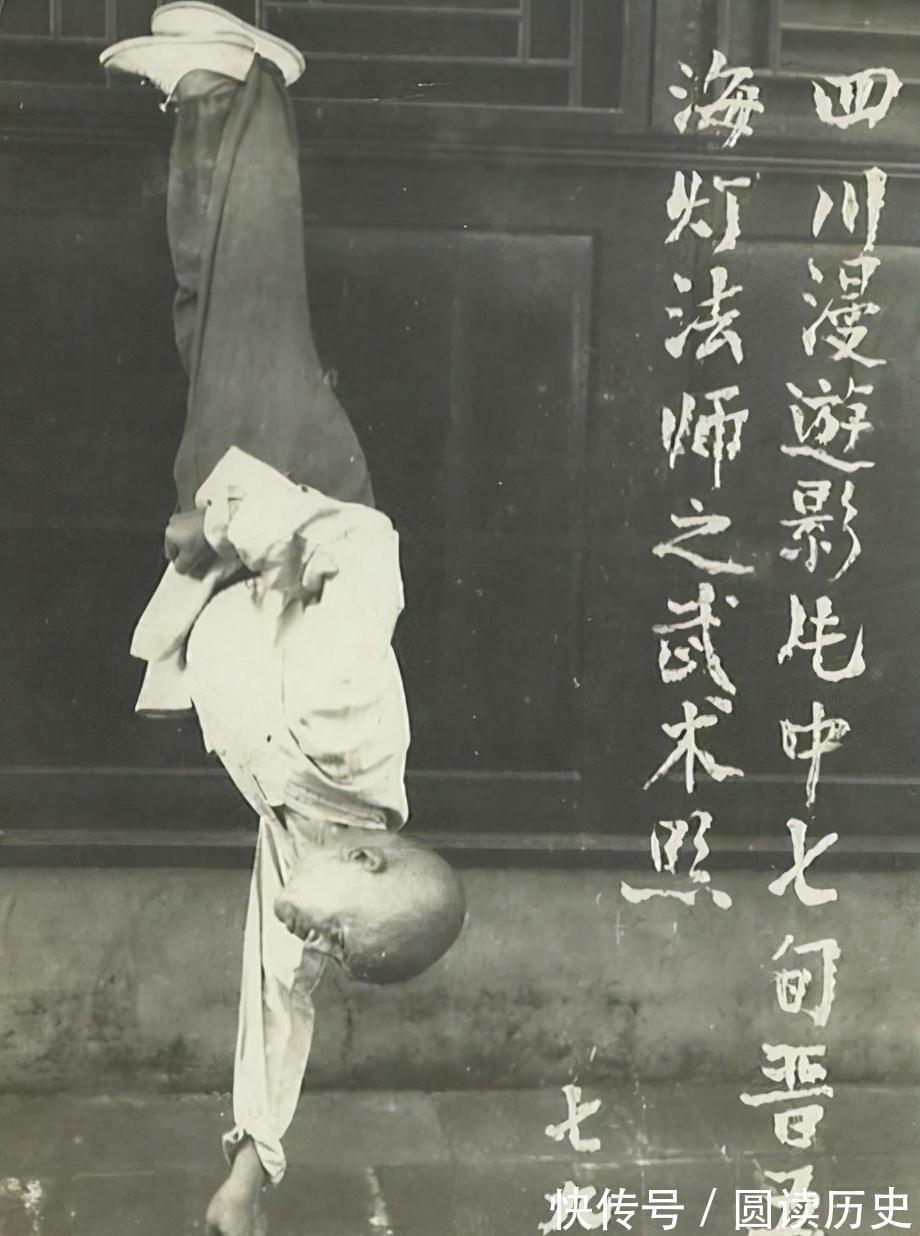 四川漫遊影片中七旬晋五
海灯法师之武术照
七
快传号 / 圆读历史